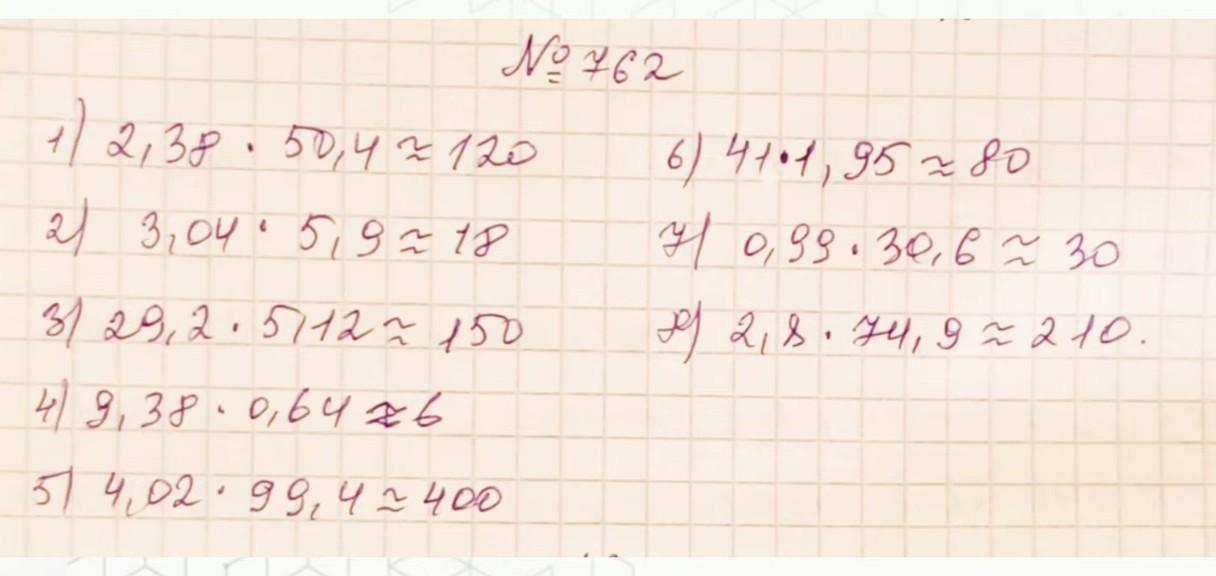 № 762
1) 2,38 · 50,4 ≈ 120
2) 3,04 · 5,9 ≈ 18
3) 29,2 · 5,12 ≈ 150
4) 9,38 · 0,64 ≈ 6
5) 4,02 · 99,4 ≈ 400
6) 41 · 1,95 ≈ 80
7) 0,99 · 30,6 ≈ 30
8) 2,8 · 74,9 ≈ 210.